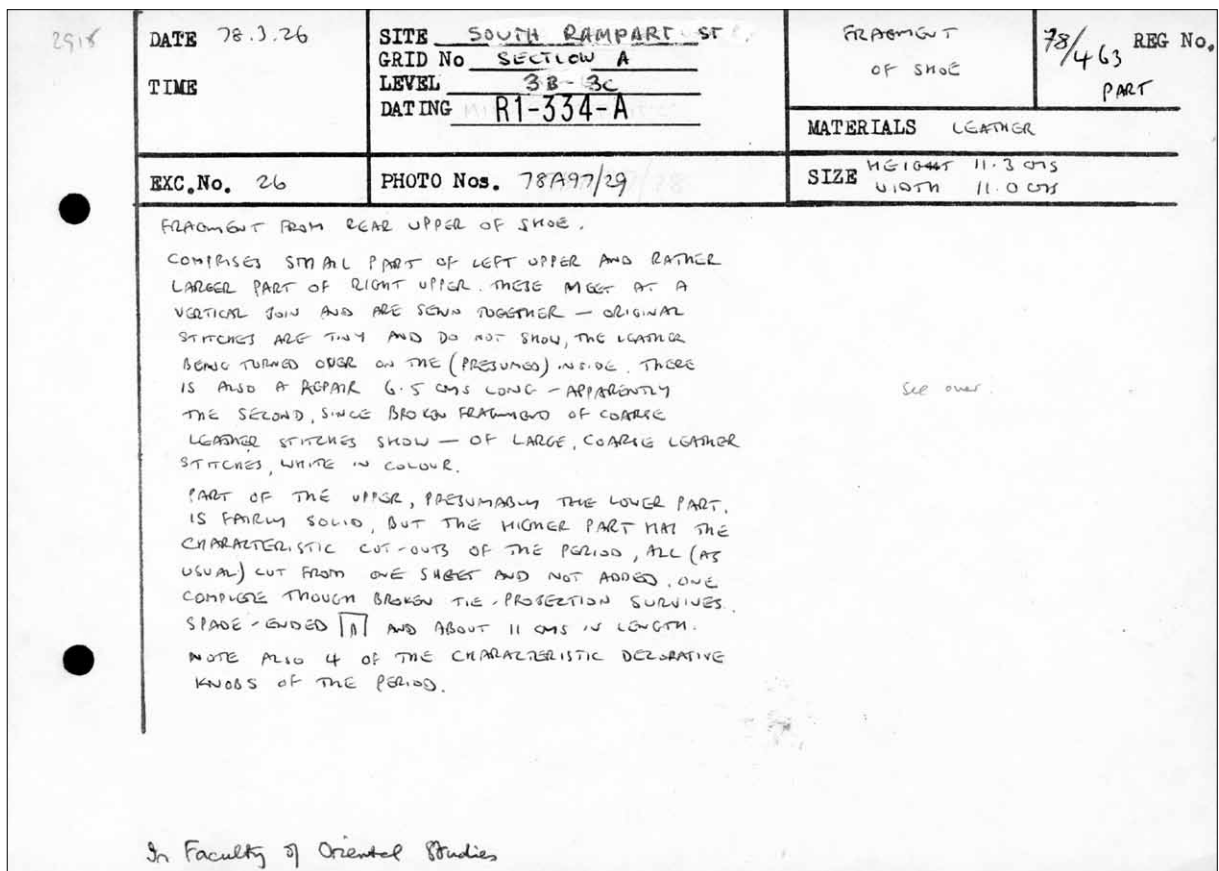 2918
DATE 78.3.26
TIME
SITE SOUTH RAMPART ST
GRID No SECTION A
LEVEL 3B-3C
DATING R1-334-A
FRAGMENT
OF SHOE
78/463 REG No.
PART
MATERIALS LEATHER
EXC.No. 26
PHOTO Nos. 78A97/29
SIZE HEIGHT 11.3 CMS
WIDTH 11.0 CMS
FRAGMENT FROM REAR UPPER OF SHOE.
COMPRISES SMALL PART OF LEFT UPPER AND RATHER
LARGER PART OF RIGHT UPPER. THESE MEET AT A
VERTICAL JOIN AND ARE SEWN TOGETHER — ORIGINAL
STITCHES ARE TINY AND DO NOT SHOW, THE LEATHER
BEING TURNED OVER ON THE (PRESUMED) INSIDE. THERE
IS ALSO A REPAIR 6.5 CMS LONG - APPARENTLY
THE SECOND, SINCE BROKEN FRAGMENTS OF COARSE
LEATHER STITCHES SHOW — OF LARGE, COARSE LEATHER
STITCHES, WHITE IN COLOUR.
See over.
PART OF THE UPPER, PRESUMABLY THE LOWER PART,
IS FAIRLY SOLID, BUT THE HIGHER PART HAS THE
CHARACTERISTIC CUT-OUTS OF THE PERIOD, ALL (AS
USUAL) CUT FROM ONE SHEET AND NOT ADDED. ONE
COMPLETE THOUGH BROKEN TIE-PROJECTION SURVIVES.
SPADE-ENDED AND ABOUT 11 CMS IN LENGTH.
NOTE ALSO 4 OF THE CHARACTERISTIC DECORATIVE
KNOBS OF THE PERIOD.
In Faculty of Oriental Studies